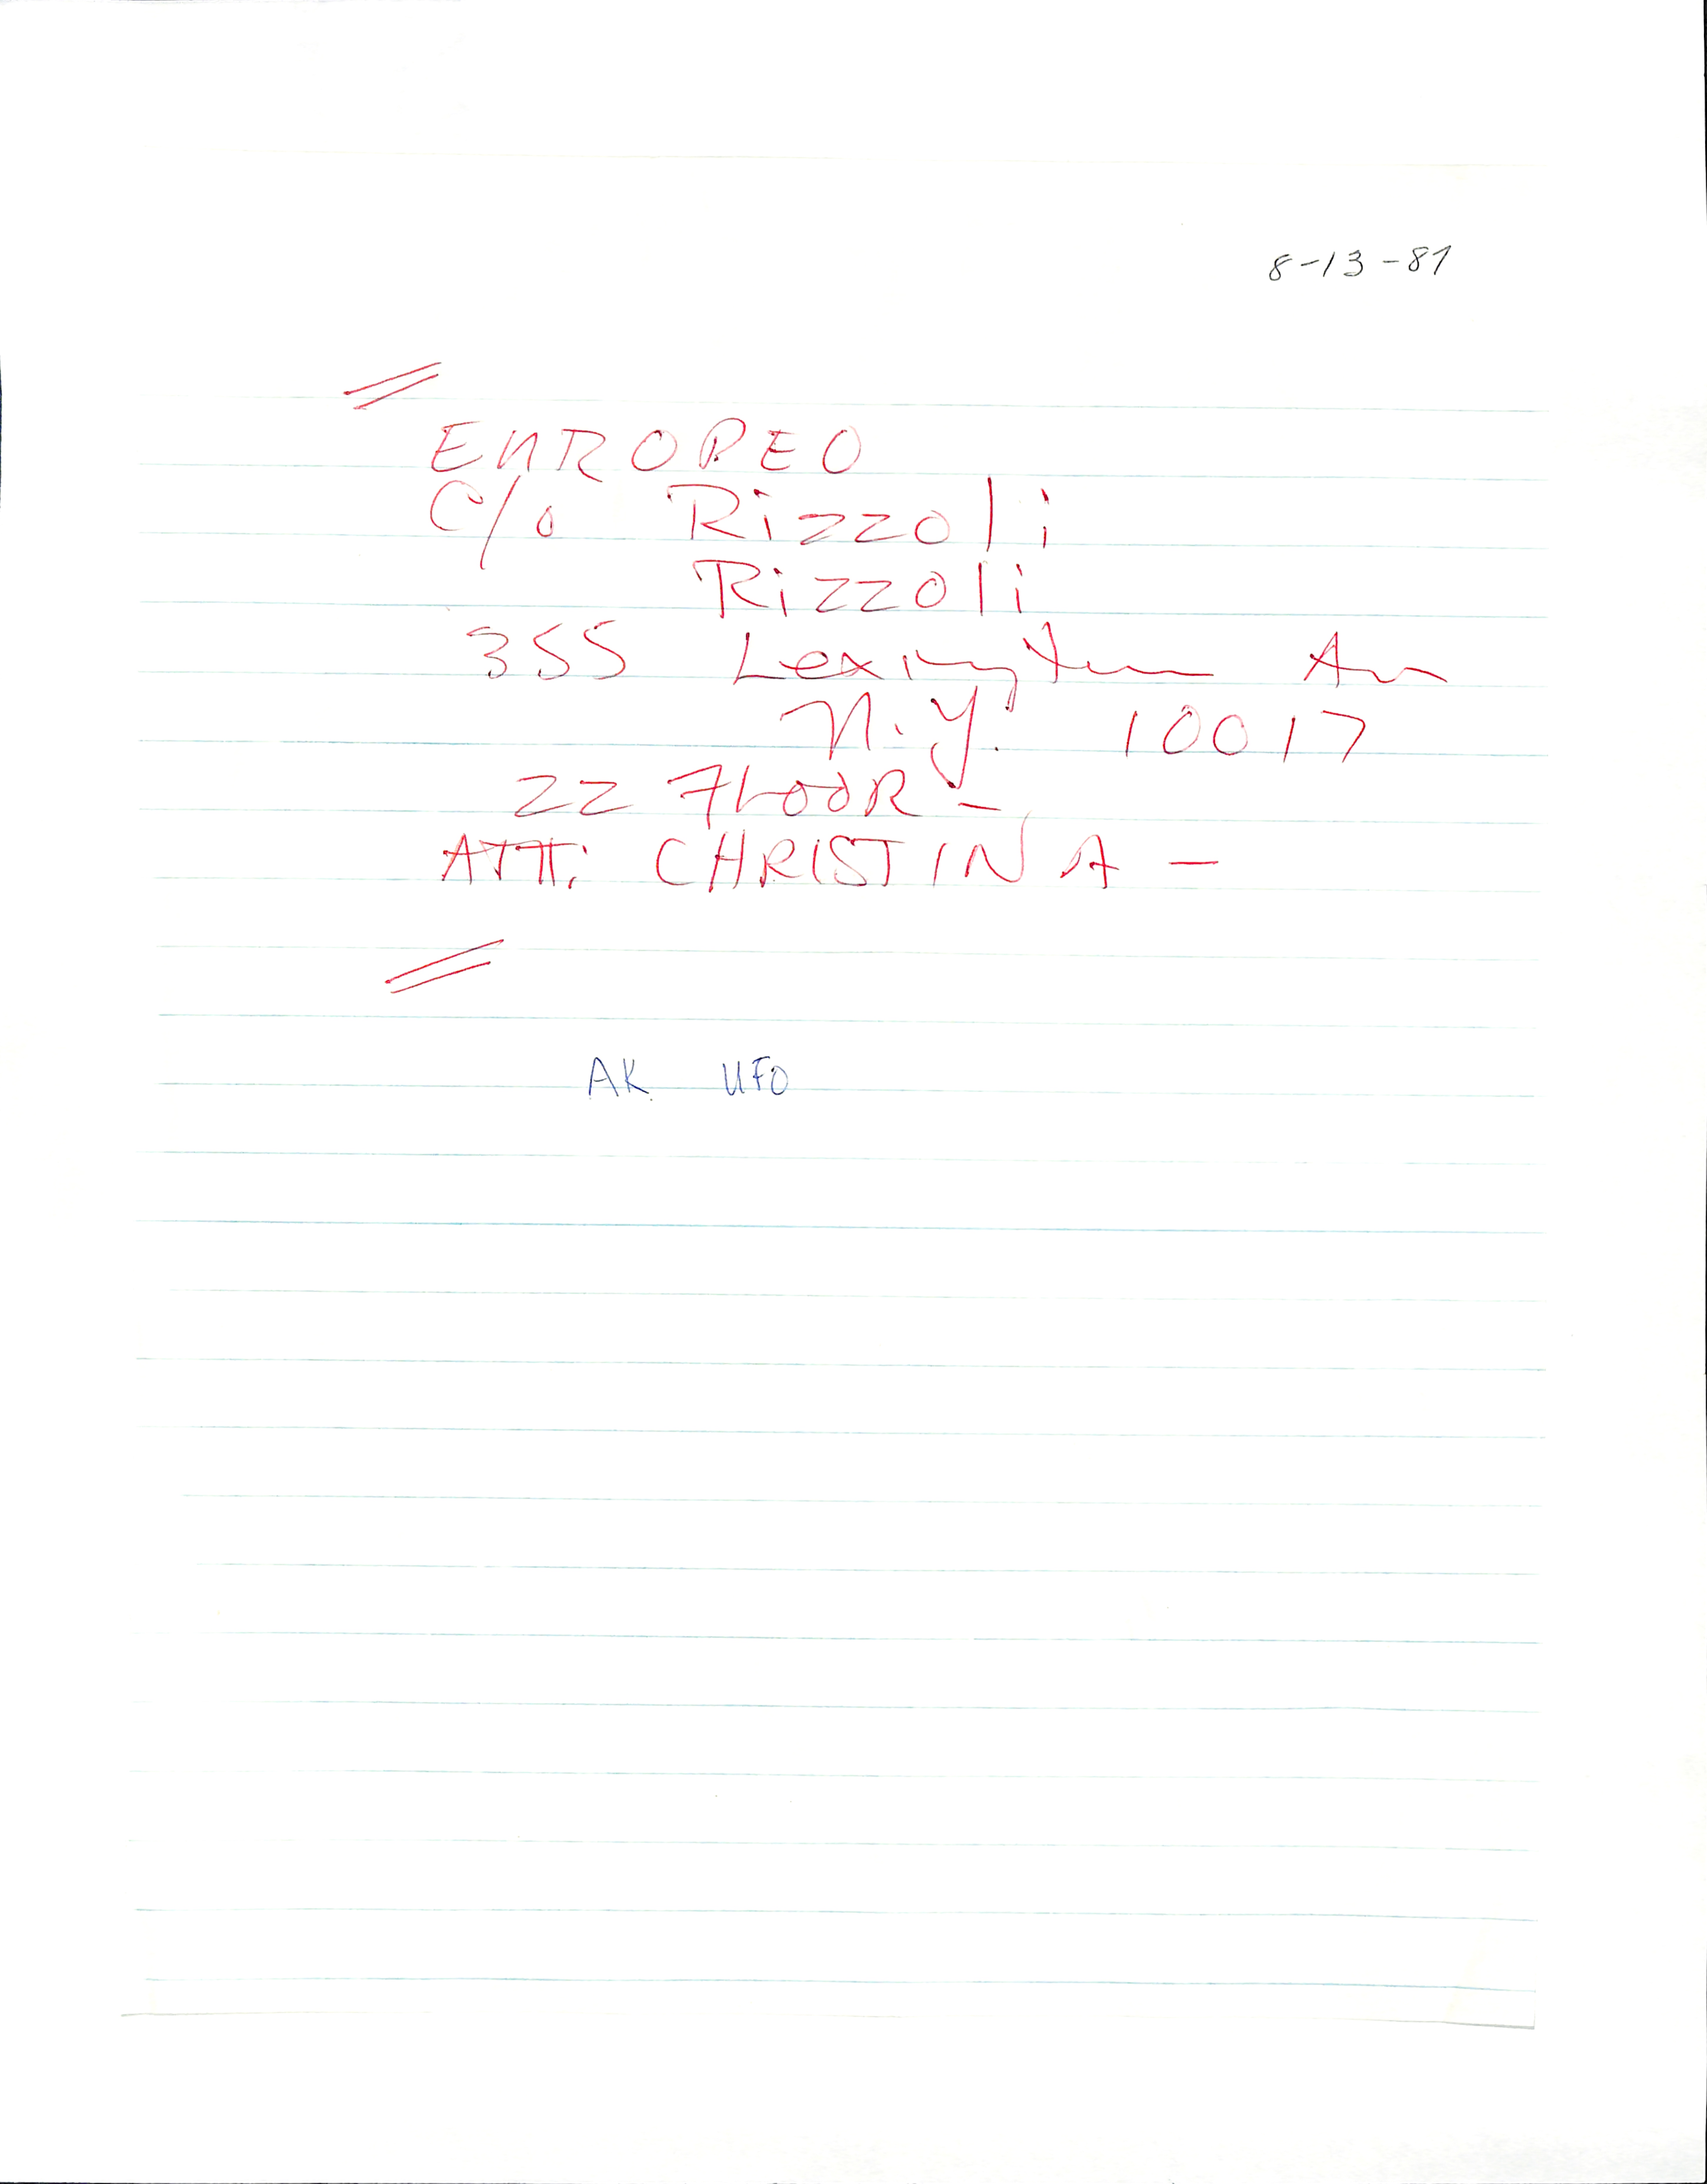 8-13-81
EUROPEO
c/o Rizzoli
Rizzoli
355 Lexington Av
N.Y. 10017
22 FLOOR -
ATT: CHRISTINA -
AK UFO